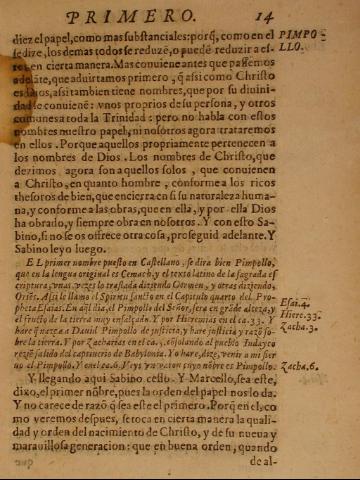 PRIMERO. 14
diez el papel, como mas substanciales: porq̃, como en el
se dize, los demas todos se reduzẽ, o puedẽ reduzir a es-
en cierta manera. Mas conviene antes que passemos
adelãte, que aduirtamos primero, q̃ asi como Christo
es Dios, asi tambien tiene nombres, que por su diuini-
dad se conuienẽ: vnos proprios de su persona, y otros
comunes a toda la Trinidad: pero no habla con estos
nombres nuestro papel, ni nosotros agora trataremos
en ellos. Porque aquellos propriamente pertenecen a
los nombres de Dios. Los nombres de Christo, que
dezimos agora son aquellos solos, que conuienen
a Christo, en quanto hombre, conforme a los ricos
thesoros de bien, que encierra en si su naturaleza huma-
na, y conforme a las obras, que en ella, y por ella Dios
ha obrado, y siempre obra en nosotros. Y con esto Sa-
bino, si no se os offrece otra cosa, proseguid adelante. Y
Sabino leyo luego.
EL primer nombre puesto en Castellano, se dira bien Pimpollo,
que en la lengua original es Cemach, y el texto latino de la sagrada es
criptura, vnas vezes lo traslada diziendo Germen, y otras diziendo,
Oriẽs. Asi le llamo el Spiritu sancto en el Capitulo quarto del Pro-
pheta Esaias. En aq̃l dia, el Pimpollo del Señor, sera en grãde alteza, y
el fructo de la tierra muy ensalçado. Y por Hieremias en el ca. 33. Y
hare q̃ nazca a Dauid Pimpollo de justicia, y hare justicia y razõ so-
bre la tierra. Y por Zacharias en el ca. 3. cõsolando al pueblo Iudayco
reziẽ salido del captiuerio de Babylonia. Yo hare, dize, venir a mi sier
uo el Pimpollo. Y en el ca. 6. Veys vn varon cuyo nõbre es Pimpollo.
Y llegando aqui Sabino cesso. Y Marcello, sea este,
dixo, el primer nõbre, pues la orden del papel nos lo da.
Y no carece de razõ q̃ sea este el primero. Porq̃ en el, co
mo veremos despues, se toca en cierta manera la quali-
dad y orden del nacimiento de Christo, y de su nueua y
marauillosa generacion: que en buena orden, quando
de al-
PIMPO
LLO.
Esai. 4.
Hiere. 33.
Zacha. 3.
Zacha. 6.